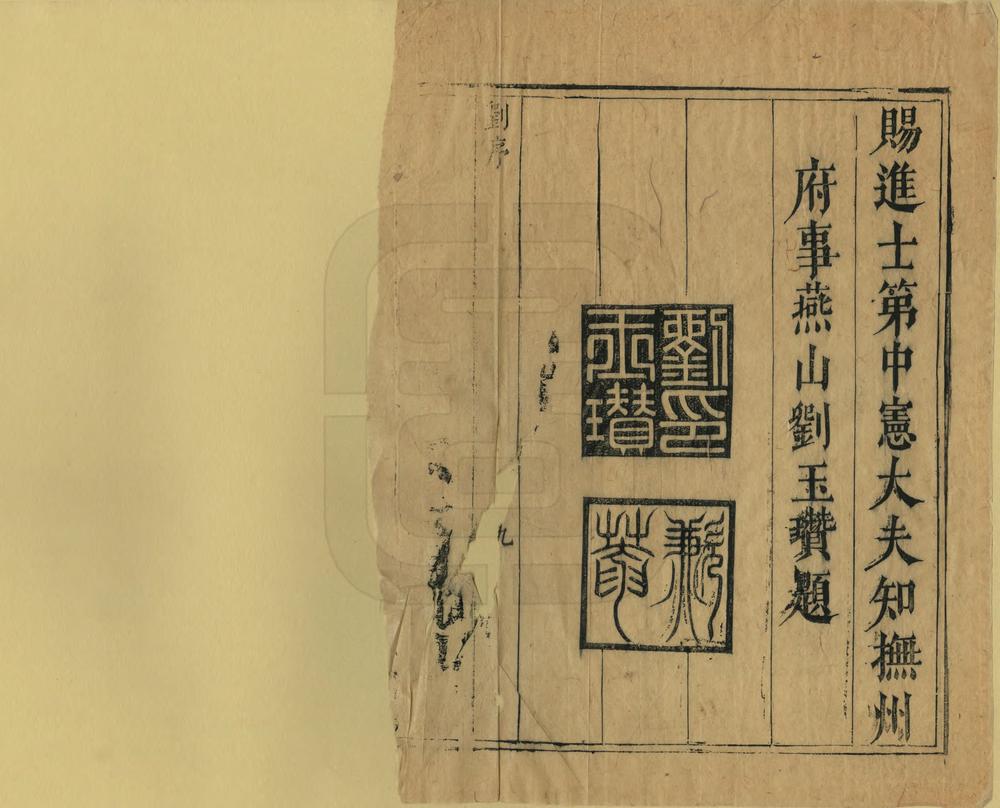 賜進士第中憲大夫知撫州
府事燕山劉玉瓚題
劉印
玉瓚
劉序
九